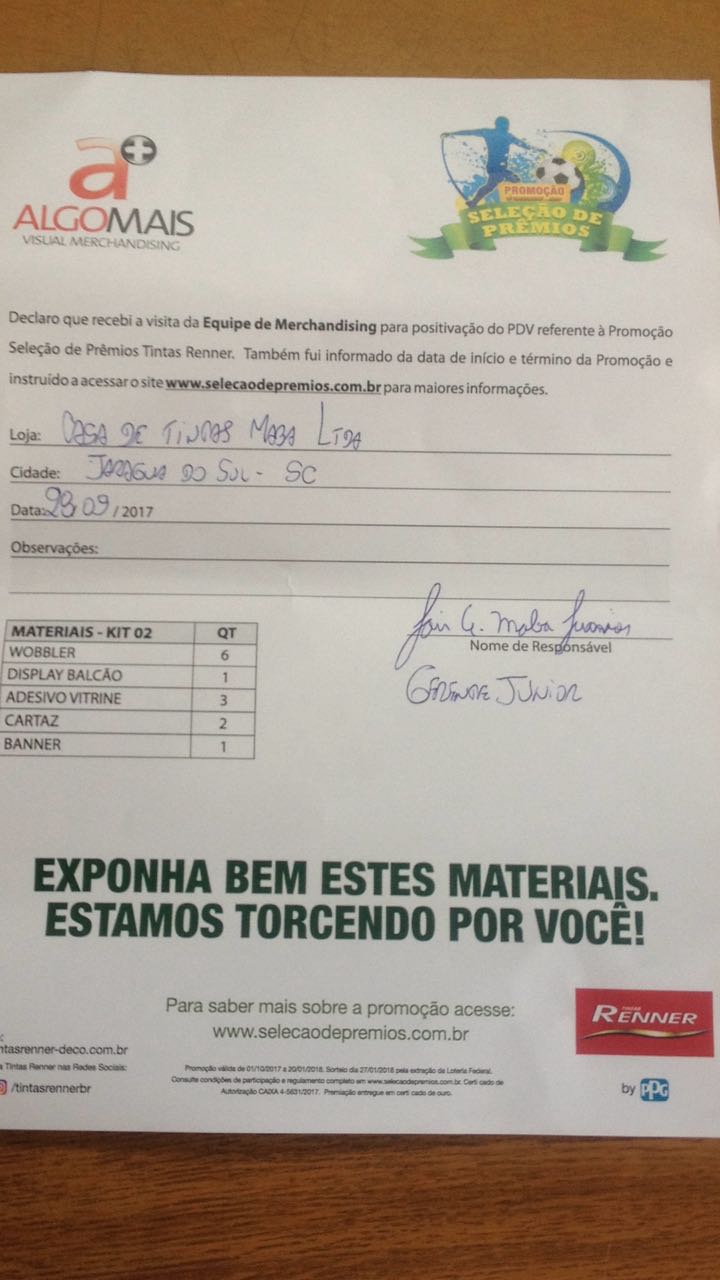 a+
ALGOMAIS
VISUAL MERCHANDISING
PROMOÇÃO
SELEÇÃO DE
PRÊMIOS
Declaro que recebi a visita da Equipe de Merchandising para positivação do PDV referente à Promoção
Seleção de Prêmios Tintas Renner. Também fui informado da data de início e término da Promoção e
instruído a acessar o site www.selecaodepremios.com.br para maiores informações.
Loja: CASA DE TINTAS MABA LTDA
Cidade: JARAGUA DO SUL - SC
Data: 28/09/2017
Observações:
Jair G. Maba Junior
Nome de Responsável
GERENTE JUNIOR
MATERIAIS - KIT 02 QT
WOBBLER 6
DISPLAY BALCÃO 1
ADESIVO VITRINE 3
CARTAZ 2
BANNER 1
EXPONHA BEM ESTES MATERIAIS.
ESTAMOS TORCENDO POR VOCÊ!
Para saber mais sobre a promoção acesse:
www.selecaodepremios.com.br
TINTAS
RENNER
by PPG
ntasrenner-deco.com.br
a Tintas Renner nas Redes Sociais:
/tintasrennerbr
Promoção válida de 01/10/2017 a 20/01/2018. Sorteio dia 27/01/2018 pela extração da Loteria Federal.
Consulte condições de participação e regulamento completo em www.selecaodepremios.com.br. Certi cado de
Autorização CAIXA 4-5631/2017. Premiação entregue em certi cado de ouro.